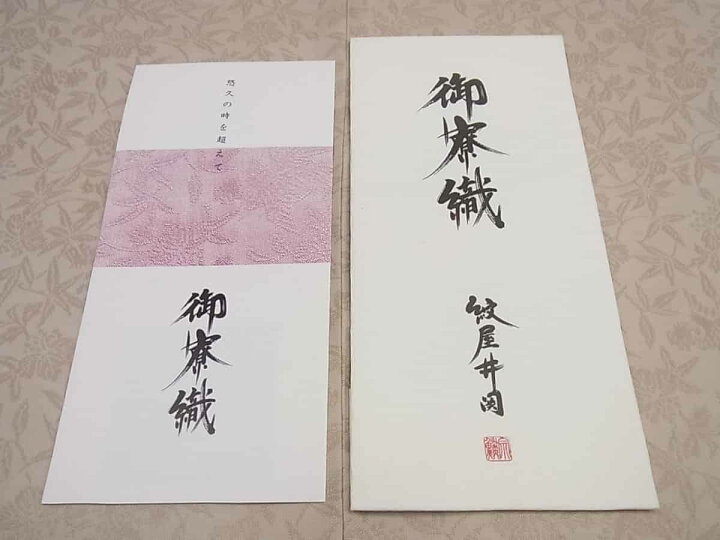 悠久の時を超えて
御寮織
御寮織
紋屋井関